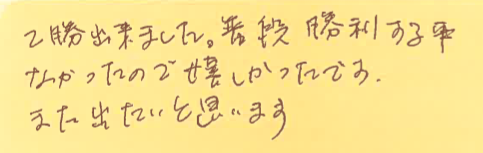 て勝出来ました。普段勝利する事
なかったので嬉しかったです.
また出たいと思います